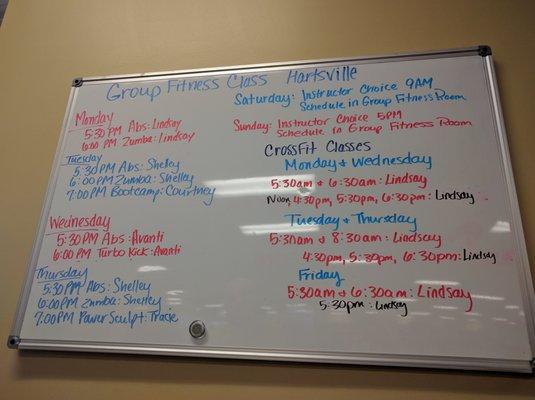 Group Fitness Class Hartsville
Monday
5:30 PM Abs: Lindsay
6:00 PM Zumba: Lindsay
Tuesday
5:30 PM Abs: Shelley
6:00 PM Zumba: Shelley
7:00 PM Bootcamp: Courtney
Wednesday
5:30 PM Abs: Avanti
6:00 PM Turbo Kick: Avanti
Thursday
5:30 PM Abs: Shelley
6:00 PM Zumba: Shelley
7:00 PM Power Sculpt: Tracie
Saturday: Instructor Choice 9AM
Schedule in Group Fitness Room
Sunday: Instructor Choice 5PM
Schedule in Group Fitness Room
CrossFit Classes
Monday + Wednesday
5:30am + 6:30am: Lindsay
Noon, 4:30pm, 5:30pm, 6:30pm: Lindsay
Tuesday + Thursday
5:30am + 8:30am: Lindsay
4:30pm, 5:30pm, 6:30pm: Lindsay
Friday
5:30am + 6:30am: Lindsay
5:30pm: Lindsay